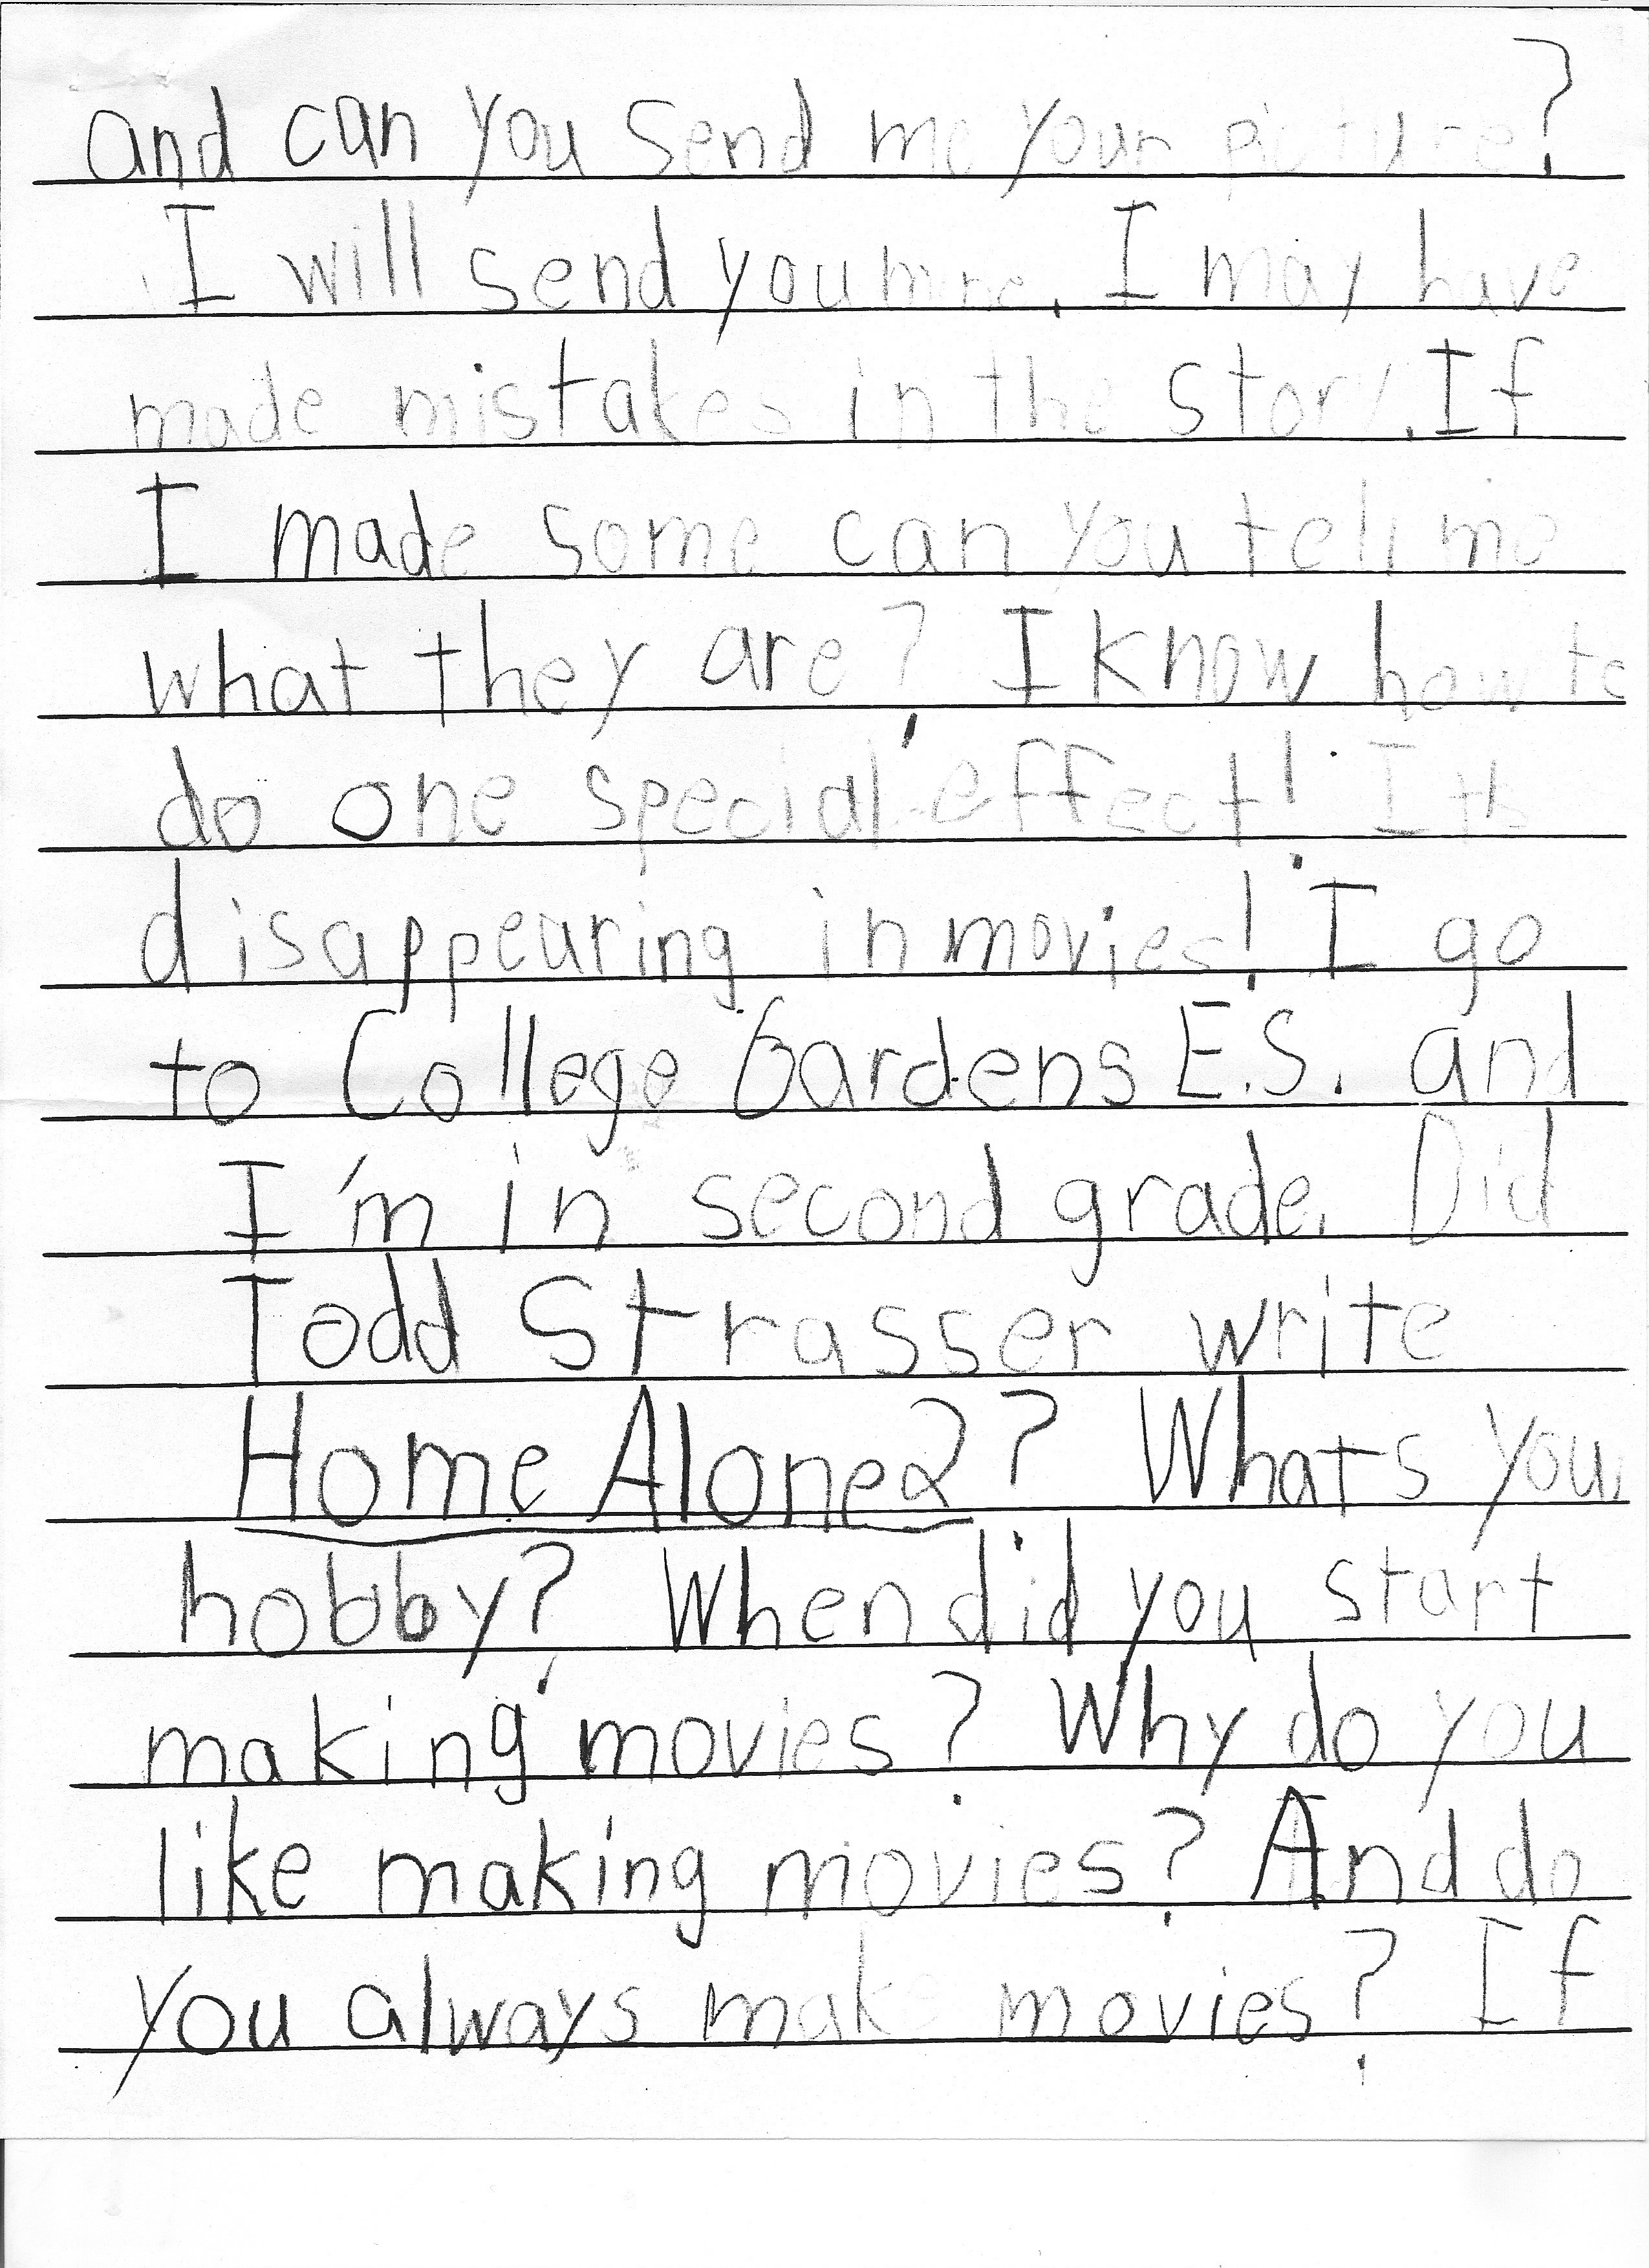 and can you send me your picture?
I will send you mine. I may have
made mistakes in the story. If
I made some can you tell me
what they are? I know how to
do one special effect! Its
disappearing in movies! I go
to College Gardens E.S. and
I'm in second grade. Did
Todd Strasser write
Home Alone 2? Whats your
hobby? When did you start
making movies? Why do you
like making movies? And do
you always make movies? If